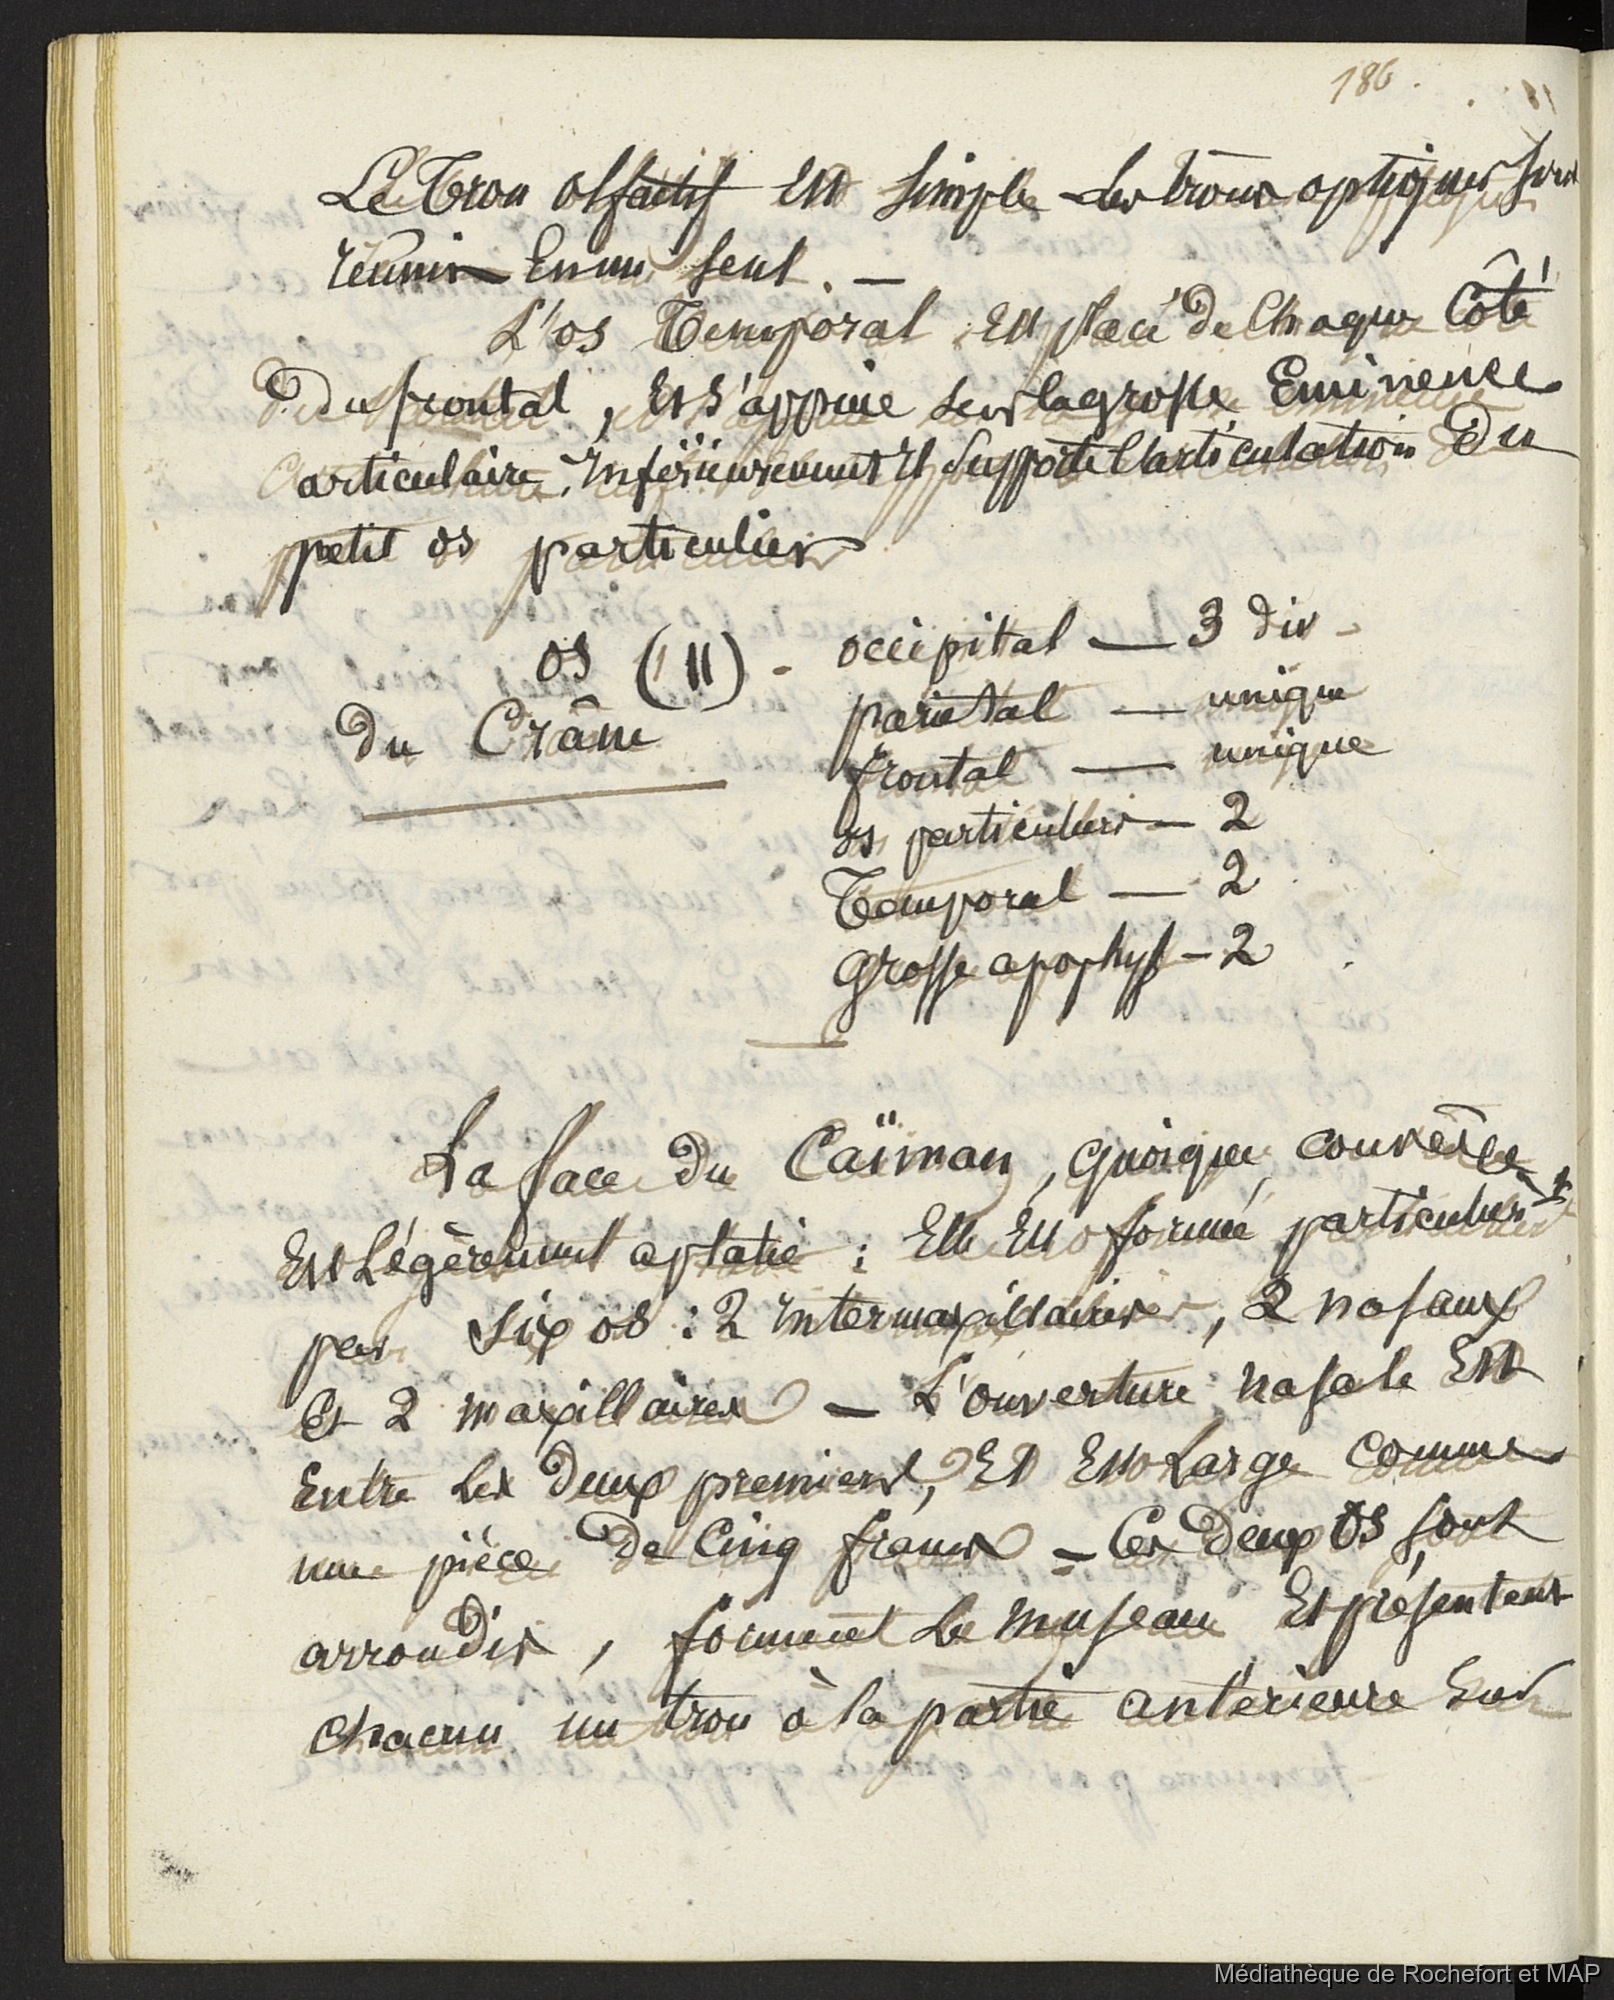 186.
Le trou olfactif est simple les trous optiques sont
réunis en un seul. —
L'os Temporal est placé de chaque Côté
du frontal, et s'appuie sur la grosse Eminence
articulaire. Inférieurement il supporte l'articulation du
petit os particulier
os (11) - occipital — 3 div -
du Crâne
pariétal — unique
frontal — unique
os particuliers — 2
Temporal — 2
grosse apophyse — 2
La face du Caïman, quoique convexe
est légèrement aplatie : Elle est formée particulier^t
par six os : 2 intermaxillaires, 2 nasaux
et 2 maxillaires — L'ouverture nasale est
entre les deux premiers, et est large comme
une pièce de cinq francs — Ces deux os sont
arrondis, forment le museau et présentent
chacun un trou à la partie antérieure sur
Médiathèque de Rochefort et MAP